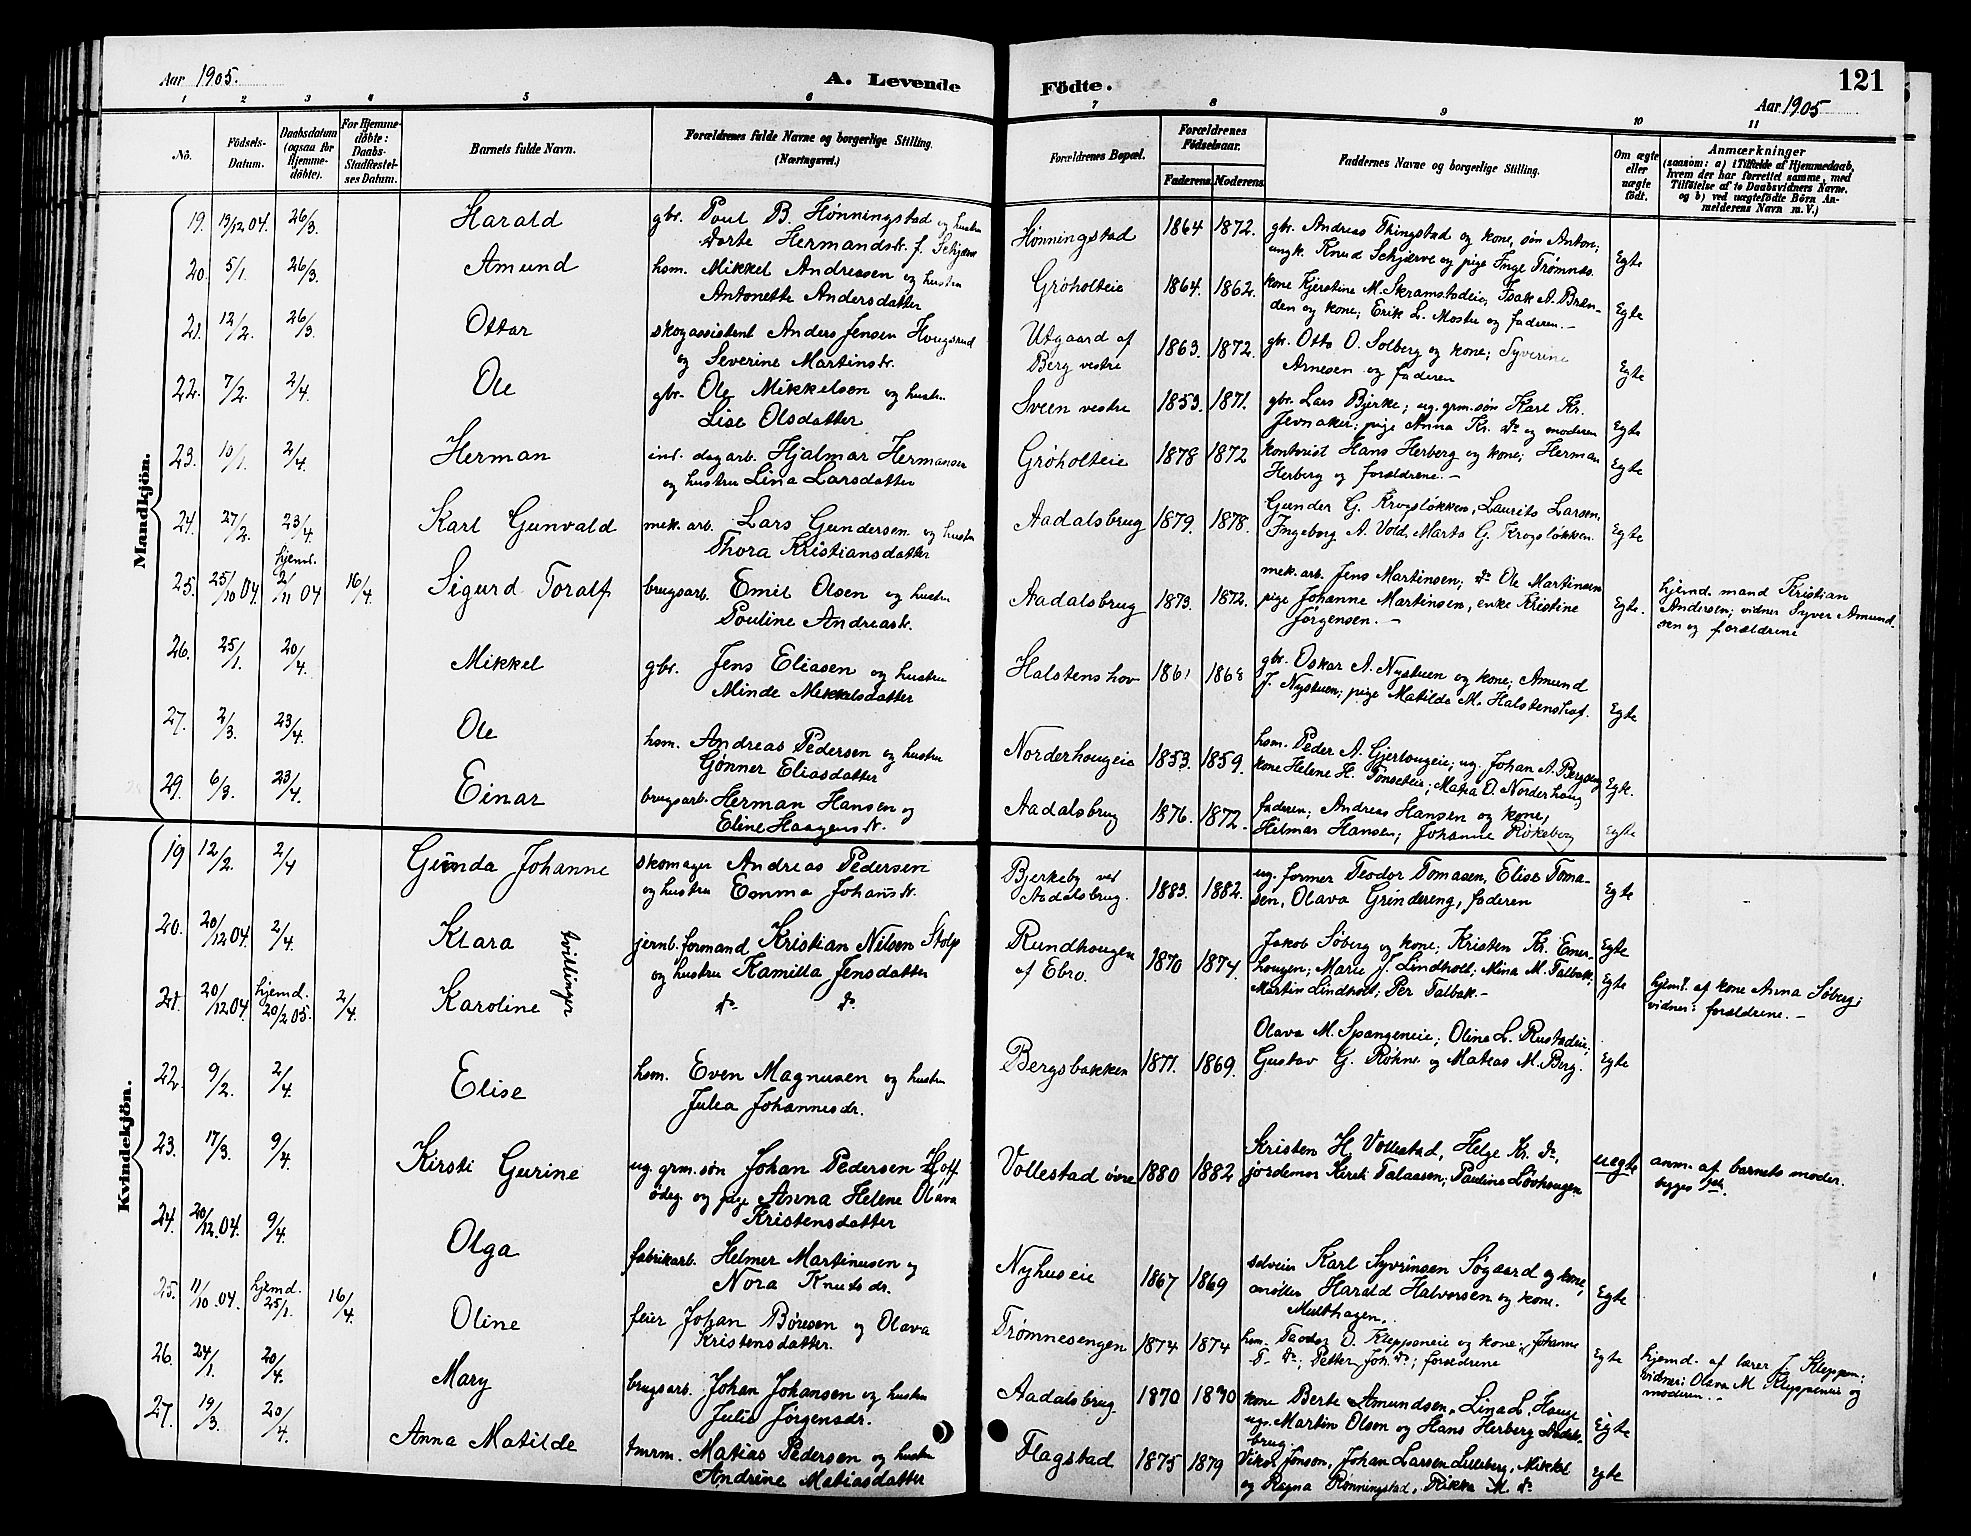 Aar 1905.
A. Levende
1 2 3 4 5 6
Nô.
Födsels-
Datum.
Daabsdatum
(ogsaa for
Hjemme-
döbte).
For Hjemme-
döbte:
Daabs-
Stadfæstel-
ses Datum.
Barnets fulde Navn.
Forældrenes fulde Navne og borgerlige Stilling.
(Næringsvei.)
Mandkjön.
19. 13/12 04. 26/3. Harald gbr. Poul B. Hønningstad og hustru
Dorte Hermandsdr. f. Schjærve
20. 5/1. 26/3. Amund hsm. Mikkel Andreasen og hustru
Antonette Andersdatter
21. 12/2. 26/3. Ottar skogassistent Anders Jensen Hougsrud
og Severine Martinsdr.
22. 7/2. 2/4. Ole gbr. Ole Mikkelsen og hustru
Lise Olsdatter
23. 10/1. 2/4. Herman ind. dagarb. Hjalmar Hermansen
og hustru Lina Larsdatter
24. 27/2. 23/4. Karl Gunvald mek. arb. Lars Gundersen og hustru
Thora Kristiansdatter
25. 25/10 04. hjemd. 2/11 04 16/4. Sigurd Toralf brugsarb. Emil Olsen og hustru
Pouline Andreasdr.
26. 25/1. 20/4. Mikkel gbr. Jens Eliasen og hustru
Minde Mikkelsdatter
27. 2/3. 23/4. Ole hsm. Andreas Pedersen og hustru
Gønner Eliasdatter
29. 6/3. 23/4. Einar brugsarb. Herman Hansen og
Eline Haagensdr.
Kvindekjön.
19 12/2. 2/4 Gunda Johanne skomager Andreas Pedersen
og hustru Emma Johansdr.
20. 20/12 04. 2/4. Klara tvillinger jernb. formand Kristian Nilsen Stolp
og hustru Kamilla Jensdatter
21. 20/12 04 hjemd. 20/2 05. 2/4. Karoline do. do.
22. 9/2. 2/4. Elise hsm. Even Magnusen og hustru
Julea Johannesdr.
23. 17/3. 9/4. Kirsti Gurine ug. grm. søn Johan Pedersen Hoff
ødeg. og pige Anna Helene Olava
Kristensdatter
24. 20/12. 04. 9/4. Olga fabrikarb. Helmer Martinusen og
Nora Knutsdr.
25. 11/10 04. hjemd. 25/1. 16/4. Oline feier Johan Børesen og Olava
Kristensdatter.
26. 24/1. 20/4. Mary brugsarb. Johan Johansen og hustru
Julie Jörgensdr.
27. 19/3. 20/4. Anna Matilde tmrm. Matias Pedersen og hustru
Andrine Matiasdatter
Födte.
121
Aar 1905
7 8 9 10 11
Forældrenes Bopæl.
Forældrenes
Födselsaar.
Faderens. Moderens.
Faddernes Navne og borgerlige Stilling.
Om ægte
eller
uægte
födt.
Anmærkninger
(saasom: a) i Tilfælde af Hjemmedaab,
hvem der har forrettet samme, med
Tilföielse af to Daabsvidners Navne,
og b) ved uægtefödte Börn An-
melderens Navn m. V.)
Hønningstad 1864 1872. gbr. Andreas Thingstad og kone, søn Anton;
ungk. Knud Schjærve og pige Inge Trømnæs. Egte
Grøholteie 1864. 1862. kone Kjerstine M. Skramstadeie, Isak A. Bræn-
den og kone; Erik L. Mostue og faderen.- Egte
Utgaard af
Berg vestre 1863. 1872. gbr. Otto O. Solberg og kone; Syverine
Arnesen og faderen Egte
Sveen vestre 1853. 1871. gbr. Lars Bjerke; ug. grm. søn Karl Kr.
Jevnaker; pige Anna Kr. do og moderen Egte
Grøholteie 1878 1872 kontorist Hans Herberg og kone; Herman
Herberg og forældrene.- Egte
Aadalsbrug 1879. 1878. Gunder G. Krogsløkken, Laurits Larsen,
Ingeborg A. Vold, Marta G. Krogsløkken. Egte
Aadalsbrug 1873. 1872. mek. arb. Jens Martinsen; do Ole Martinsen
pige Johanne Martinsen, enke Kristine
Jörgensen.- Egte. hjemd. mand Kristian
Andersen; vidner Syver Amund-
sen og forældrene
Halstenshov 1861 1868 gbr. Oskar A. Nystuen og kone; Amund
J. Nystuen; pige Matilde M. Halstenshof. Egte
Norderhougeie 1853. 1859. hsm. Peder A. Gjerlougeie; ug. Johan A. Bergseng
kone Helene H. Tønseteie; Matea O. Norderhoug Egte.
Aadalsbrug 1876. 1872. faderen; Andreas Hansen og kone,
Hilmar Hansen; Johanne Røkeberg Egte
Bjerkeby ved
Aadalsbrug. 1883. 1882. ug. former Teodor Tomasen, Elise Toma-
sen, Olava Grindereng, faderen Egte
Rundhougen
af Ebro. 1870 1874. Jakob Søberg og kone; Kristen Kr. Emer- Egte
hougen; Marie J. Lindholt; Mina M. Talbak; Egte
Martin Lindholt; Per Talbak.-
hjemd. af kone Anna Søberg;
vidner: forældrene.-
Bergsbakken 1871. 1869. Olava M. Spangeneie; Olina L. Rustadeie;
Gustav G. Røkne og Matias M. Berg. Egte
Vollestad övre 1880 1882 Kristen H. Vollestad, Helge Kr. do,
jordemor Kirsti Talaasen; Pauline Lövhougen uegte anm. af barnets moder.
begges 1st.
Nyhuseie 1867 1869 selveier Karl Syvrinsen Søgaard og kone,
møller Harald Halvorsen og kone.
Multhagen. Egte
Trømnesengen 1874 1874 hsm. Teodor O. Kleppeneie og kone; Johanne
T. do; Petter Joh. do; forældrene Egte hjemd. af lærer J. Kleppen;
vidner: Olava M. Kleppeneie og
moderen.-
Aadalsbrug 1870 1890 kone Berte Amundsen, Lina L. Hauge
ug. Martin Olsen og Hans Herberg Aadals-
brug. Egte
Flagstad 1875 1879 Viktor Jonson, Johan Larsen Lilleberg, Mikkel
og Ragna Rönningstad, Rikka M. do Egte